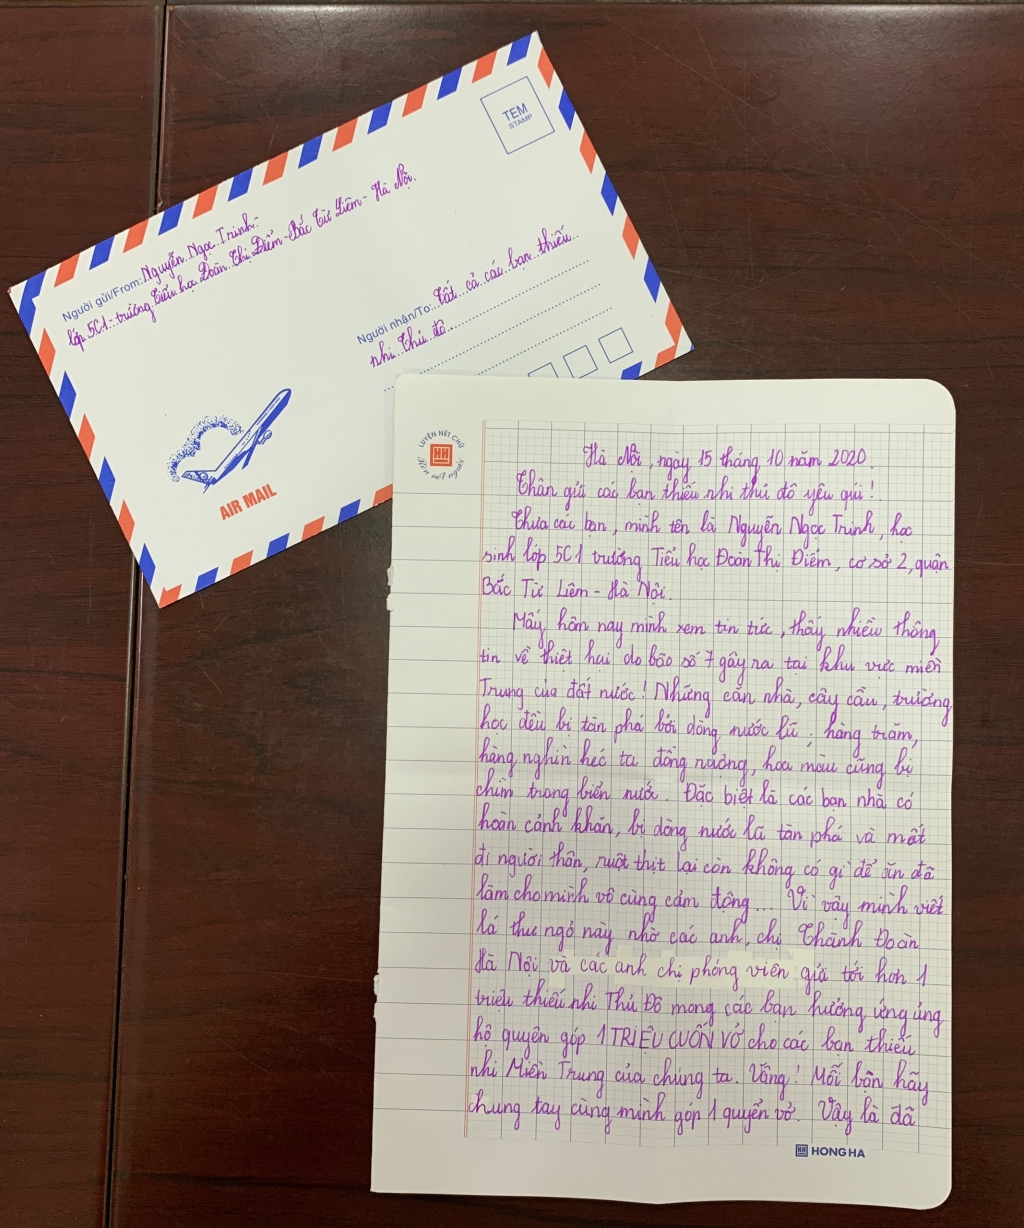 TEM
STAMP
Người gửi/From: Nguyễn Ngọc Trinh-
lớp 5C1-trường Tiểu học Đoàn Thị Điểm-Bắc Từ Liêm-Hà Nội.
Người nhận/To: Tất cả các bạn thiếu
nhi Thủ đô
AIR MAIL
LUYỆN NÉT CHỮ
HH
Hà Nội, ngày 15 tháng 10 năm 2020
Thân gửi các bạn thiếu nhi thủ đô yêu quí!
Thưa các bạn, mình tên là Nguyễn Ngọc Trinh, học
sinh lớp 5C1 trường Tiểu học Đoàn Thị Điểm, cơ sở 2, quận
Bắc Từ Liêm - Hà Nội.
Mấy hôm nay mình xem tin tức, thấy nhiều thông
tin về thiệt hại do bão số 7 gây ra tại khu vực miền
Trung của đất nước! Những căn nhà, cây cầu, trường
học đều bị tàn phá bởi dòng nước lũ; hàng trăm,
hàng nghìn héc ta đồng ruộng, hoa màu cũng bị
chìm trong biển nước. Đặc biệt là các bạn nhà có
hoàn cảnh khăn, bị dòng nước lũ tàn phá và mất
đi người thân, ruột thịt lại còn không có gì để ăn đã
làm cho mình vô cùng cảm động... Vì vậy mình viết
lá thư ngỏ này nhờ các anh, chị Thành Đoàn
Hà Nội và các anh chị phóng viên gửi tới hơn 1
triệu thiếu nhi Thủ Đô mong các bạn hưởng ứng ủng
hộ quyên góp 1 TRIỆU CUỐN VỞ cho các bạn thiếu
nhi Miền Trung của chúng ta. Vâng! Mỗi bạn hãy
chung tay cùng mình góp 1 quyển vở. Vậy là đã
HH HONG HA